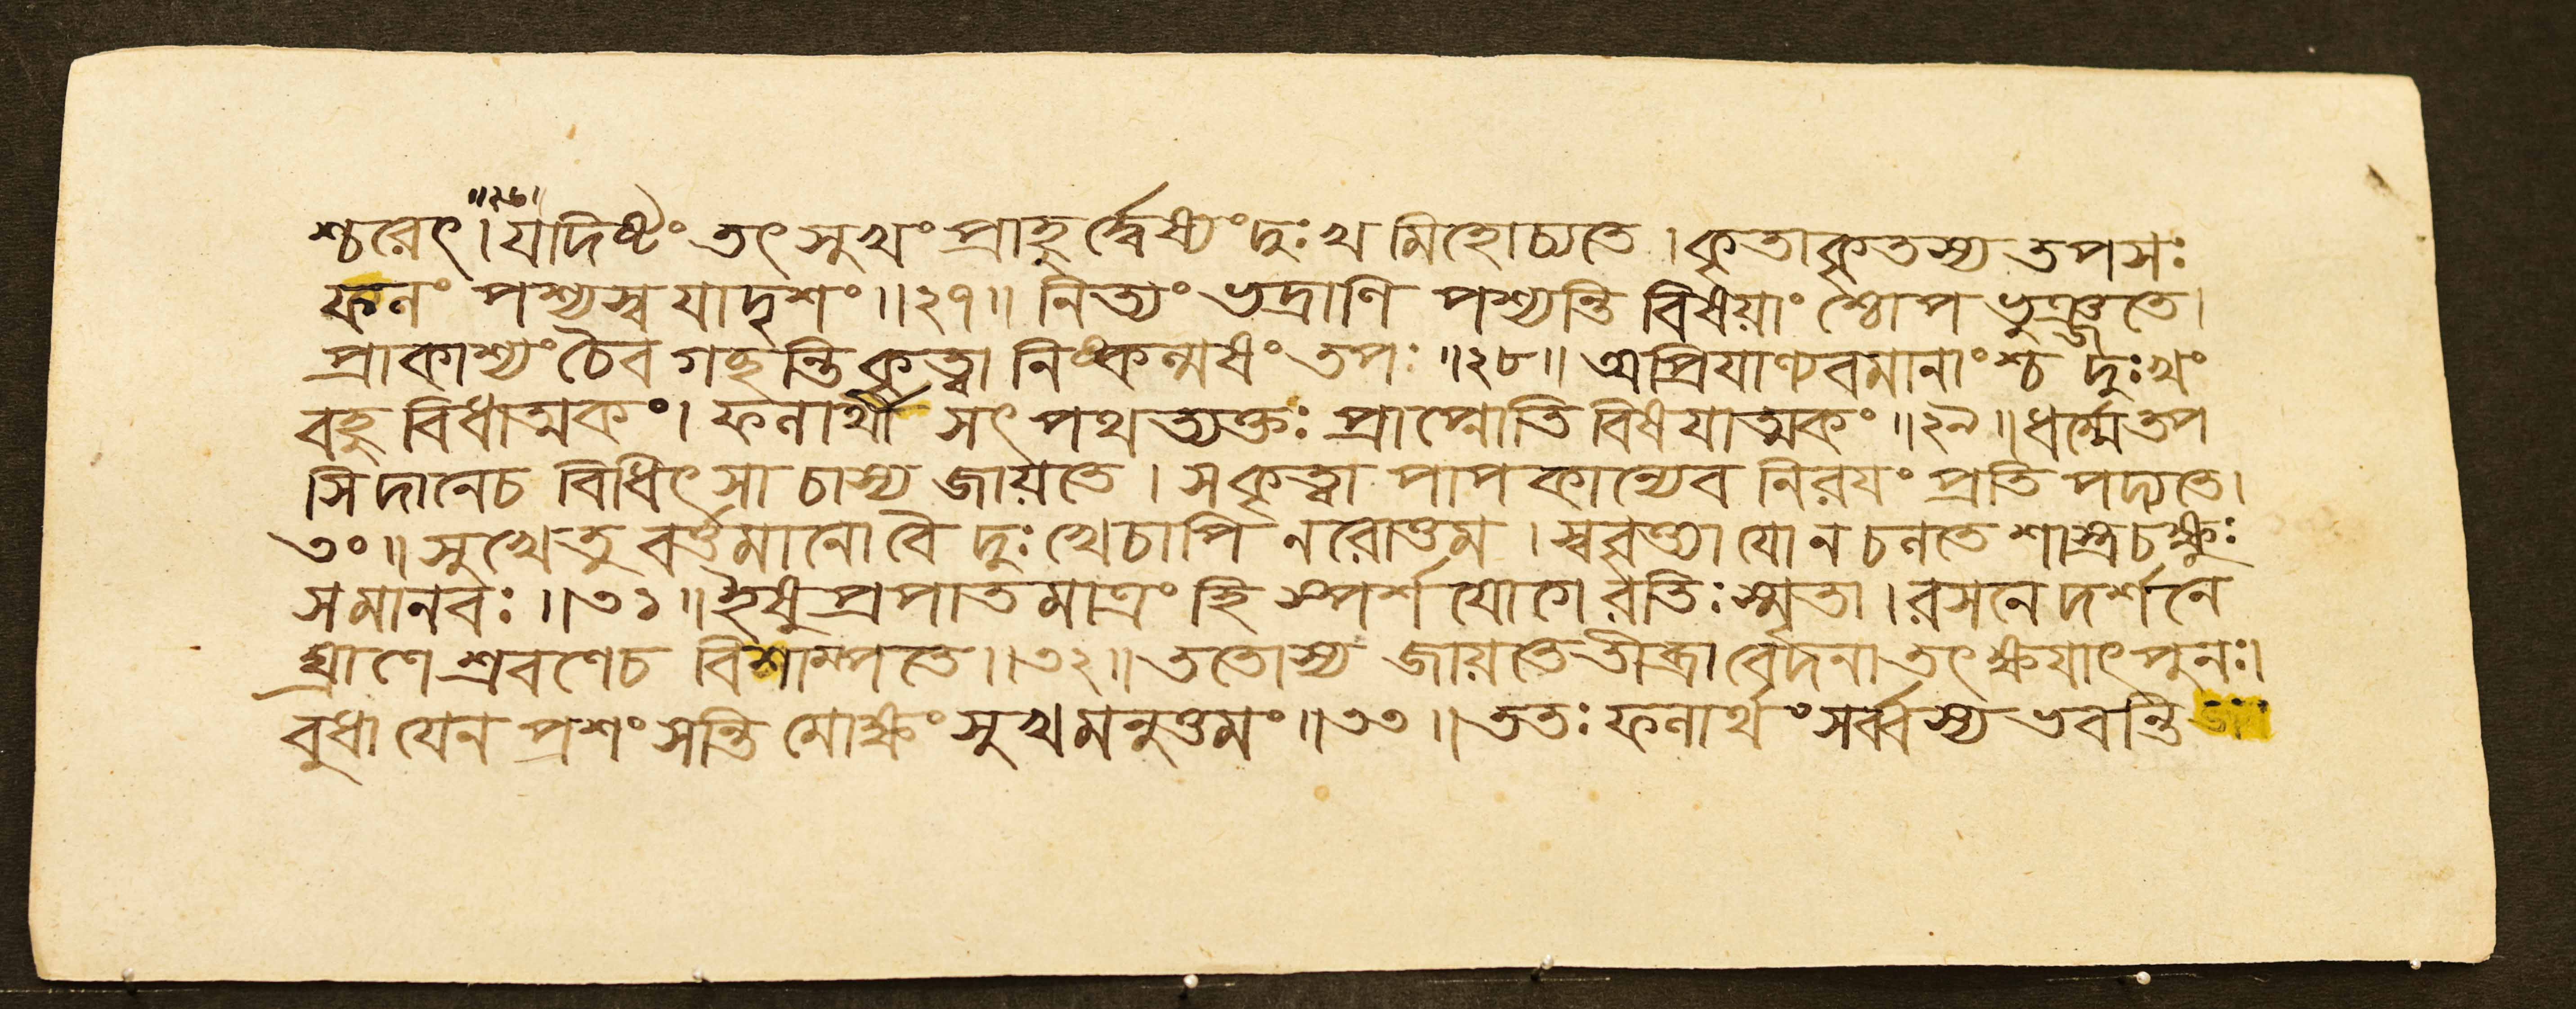 শ্চরেৎ ॥২৬॥ যদিষ্টং তৎসুখং প্রাহুর্দ্বেষ্যং দুঃখমিহোচ্যতে । কৃতাকৃতস্য তপসঃ
ফলং পশ্যস্ব যাদৃশং ॥২৭॥ নিত্যং ভদ্রাণি পশ্যন্তি বিষয়াংশ্চোপভুঞ্জতে ।
প্রাকাশ্যং চৈব গছন্তি কৃত্বা নিষ্কল্মষং তপঃ ॥২৮॥ অপ্রিযাণ্যবমানাংশ্চ দুঃখং
বহুবিধাত্মকং । ফলার্থী সৎপথত্যক্তঃ প্রাপ্নোতি বিষযাত্মকং ॥২৯॥ ধর্ম্মে তপ
সি দানে চ বিধিৎসা চাস্য জায়তে । স কৃত্বা পাপকান্যেব নিরযং প্রতিপদ্যতে ।
৩০॥ সুখে তু বর্ত্তমানো বৈ দুঃখে চাপি নরোত্তম । স্ববৃত্তাদ্যো ন চলতে শাস্ত্রচক্ষুঃ
স মানবঃ ॥৩১॥ ইষুপ্রপাতমাত্রং হি স্পর্শযোগে রতিঃ স্মৃতা । রসনে দর্শনে
ঘ্রাণে শ্রবণে চ বিশাম্পতে ॥৩২॥ ততোস্য জায়তে তীব্রা বেদনা তৎক্ষযাৎ পুনঃ ।
বুধা যেন প্রশংসন্তি মোক্ষং সুখমনুত্তমং ॥৩৩॥ ততঃ ফলার্থং সর্ব্বস্য ভবন্তি